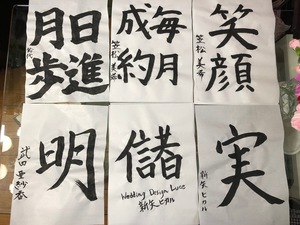 日進
月歩
毎月
成約
笑顔
笠松
明
武田
儲
Wedding Design Luce
新矢ヒカル
実
新矢 ヒカル